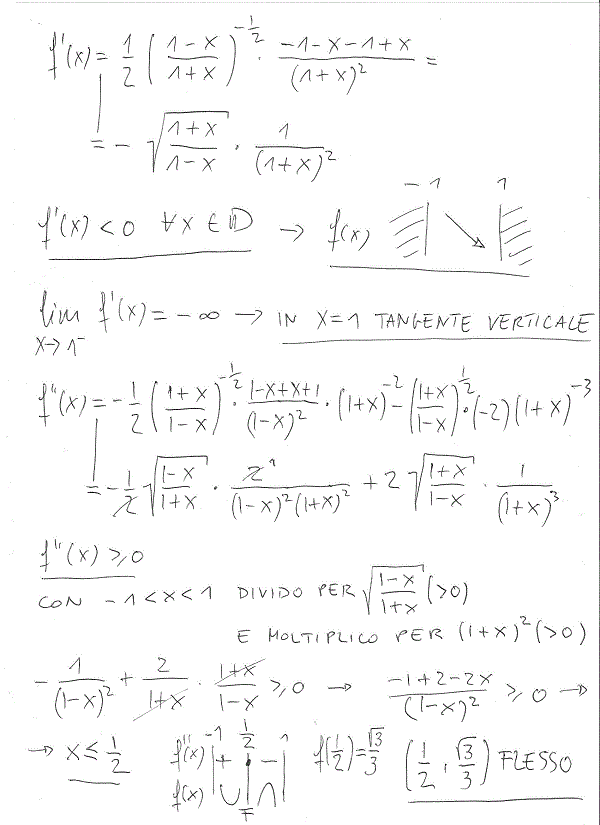 f'(x) = 1/2 ((1-x)/(1+x))^(-1/2) · (-1-x-1+x)/(1+x)^2 =
= - √((1+x)/(1-x)) · 1/(1+x)^2
-1 1
f'(x) < 0 ∀x ∈ D → f(x)
lim f'(x) = -∞ → IN X=1 TANGENTE VERTICALE
x→1^-
f''(x) = -1/2 ((1+x)/(1-x))^(-1/2) · (1-x+x+1)/(1-x)^2 · (1+x)^(-2) - ((1+x)/(1-x))^(1/2) · (-2)(1+x)^(-3)
= -1/2 √((1-x)/(1+x)) · 2 1/((1-x)^2 (1+x)^2) + 2 √((1+x)/(1-x)) · 1/(1+x)^3
f''(x) ≥ 0
CON -1 < x < 1 DIVIDO PER √((1-x)/(1+x)) (>0)
E MOLTIPLICO PER (1+x)^2 (>0)
-1/(1-x)^2 + 2/(1+x) · (1+x)/(1-x) ≥ 0 → (-1+2-2x)/(1-x)^2 ≥ 0 →
→ x ≤ 1/2 f''(x) -1 + 1/2 - 1 f(1/2) = √3/3 (1/2, √3/3) FLESSO
f(x) ∪ ∩
F